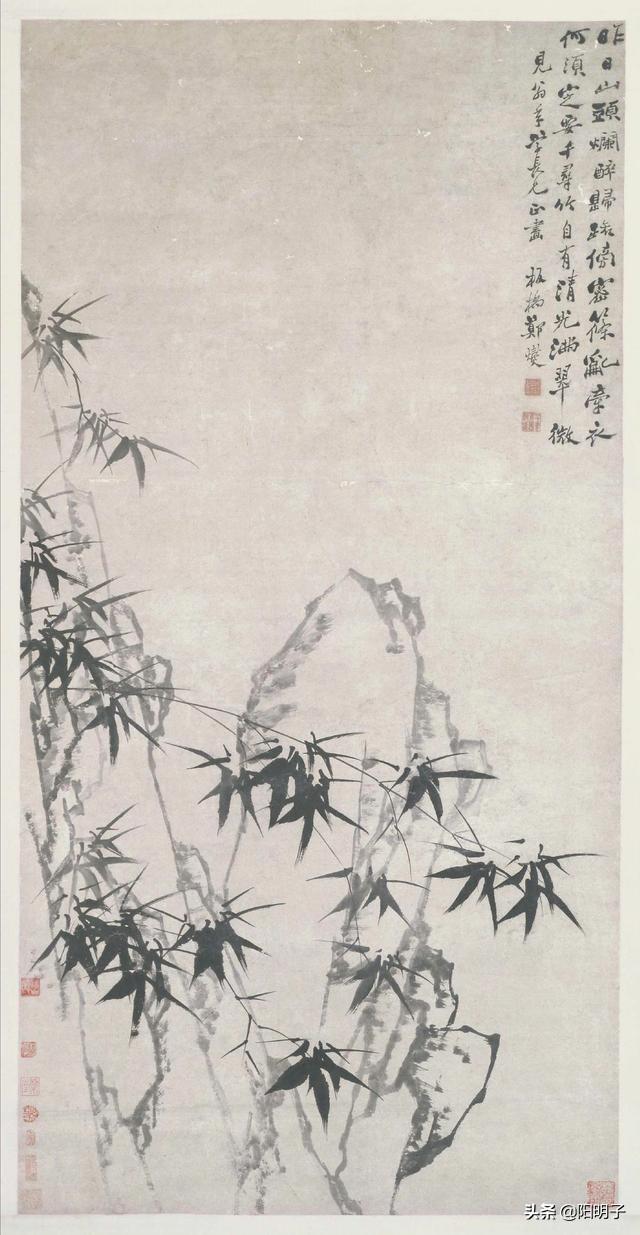 昨日山頭爛醉歸路傍密篠亂牽衣
何須定要千尋竹自有清光滿翠微
見翁年學長兄正畫 板橋鄭燮
头条 @阳明子